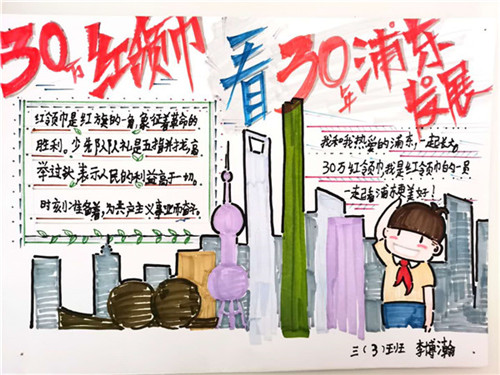 30万红领巾看30年浦东
发展
红领巾是红旗的一角,象征着革命的
胜利。少先队队礼是五指并拢高
举过头,表示人民的利益高于一切。
时刻准备着,为共产主义事业而奋斗。
我和我热爱的浦东,一起长大。
30万红领巾,我是红领巾的一员
一起看浦东更美好!
三(3)班 李博瀚